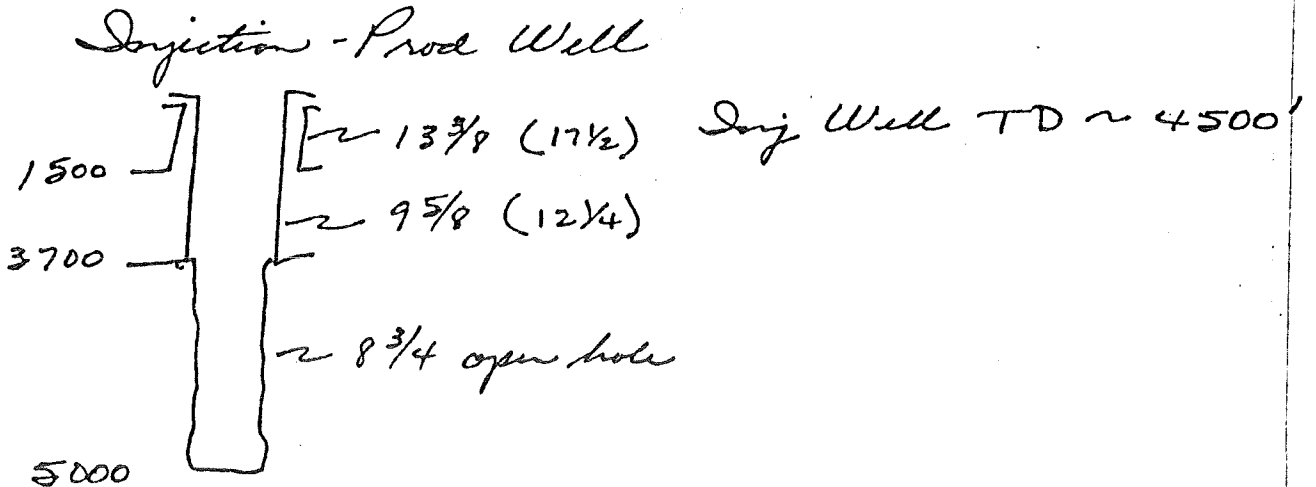 Injection - Prod Well
13 3/8 (17 1/2) Inj Well TD ~ 4500'
1500
9 5/8 (12 1/4)
3700
8 3/4 open hole
5000